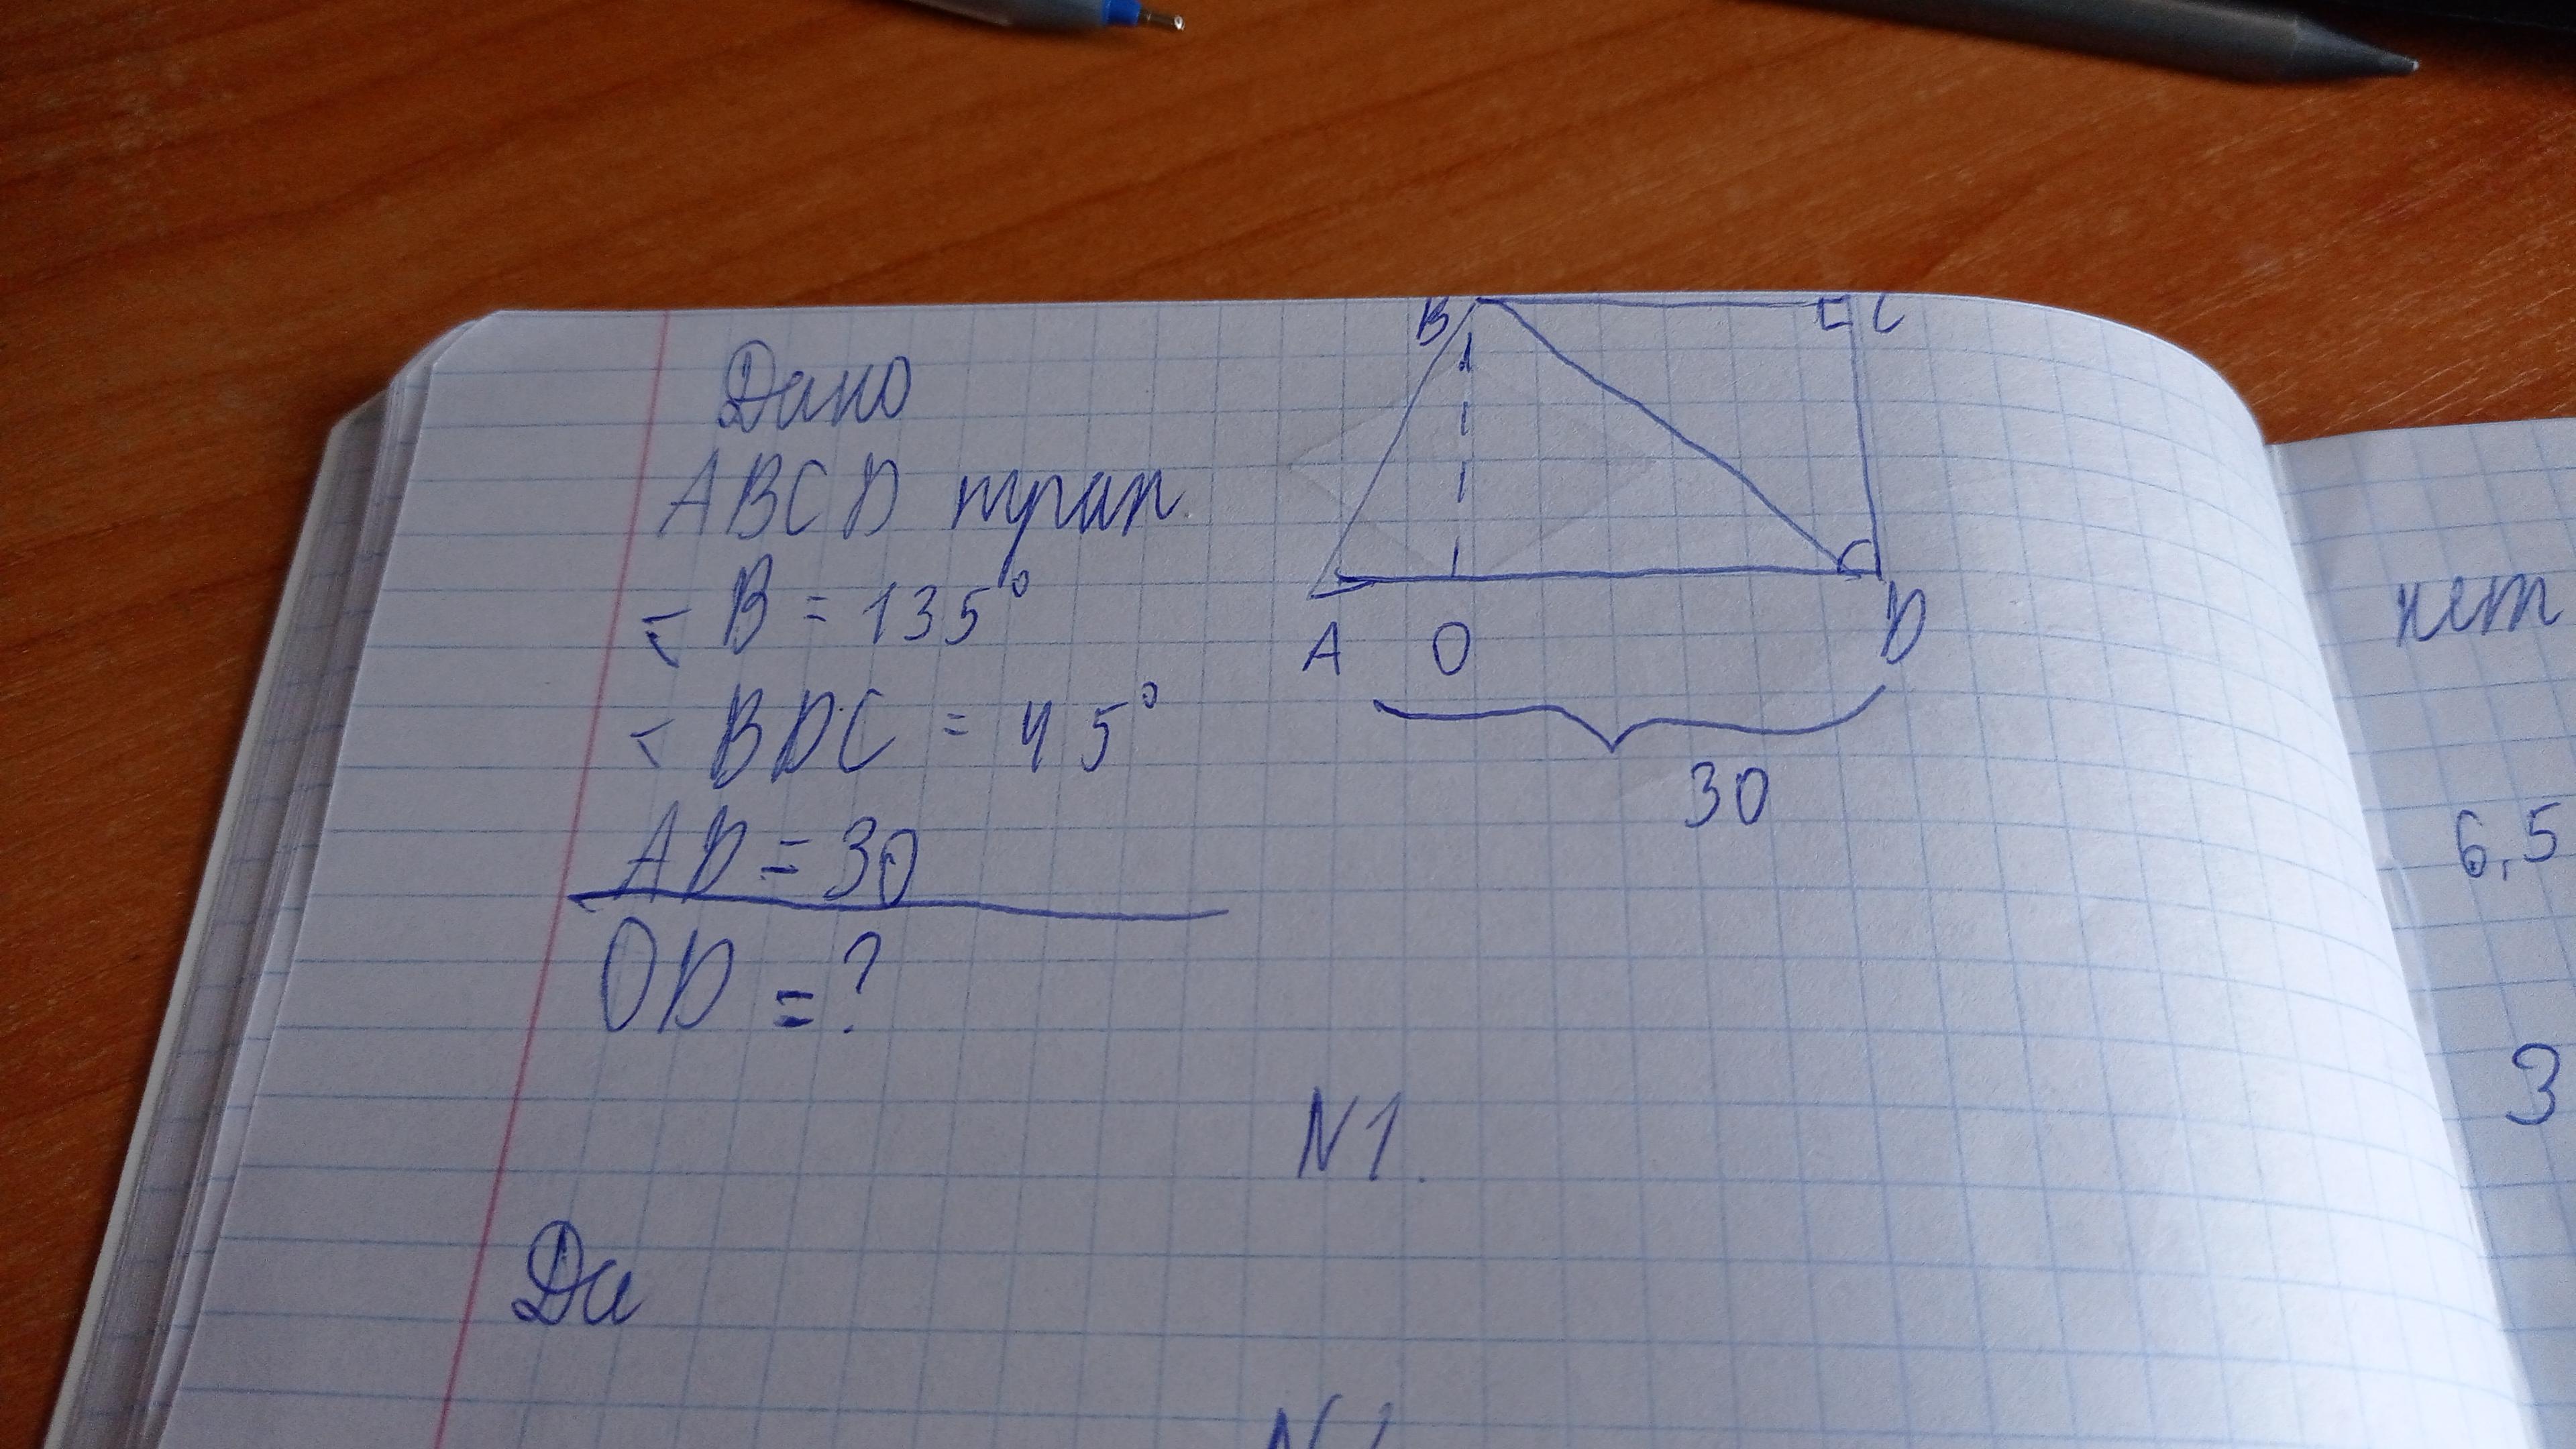 Дано
ABCD трап.
< B = 135°
< BDC = 45°
AD = 30
OD = ?
B C
A O D
30
N1.
Да
N1
нет
6,5
3